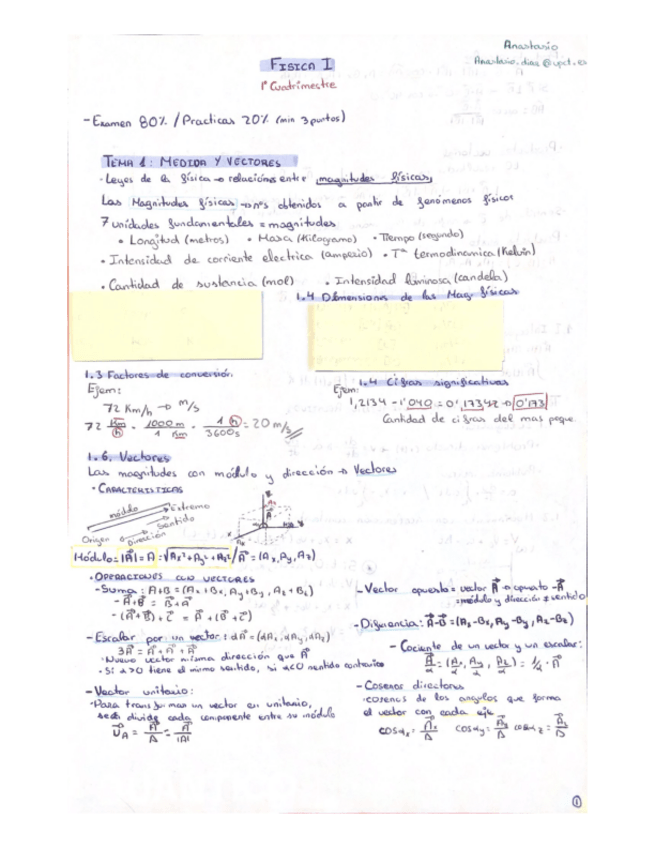 Anastasio
Anastasio.dias@upct.es
FISICA I
1º Cuatrimestre
- Examen 80% / Practicas 20% (min 3 puntos)
TEMA 1: MEDIDA Y VECTORES
· Leyes de la física → relaciones entre magnitudes físicas
Las Magnitudes físicas → nºs obtenidos a partir de fenomenos físicos
7 unidades fundamentales = magnitudes
• Longitud (metros) • Masa (Kilogramo) • Tiempo (segundo)
• Intensidad de corriente electrica (amperio) • Tª termodinamica (Kelvin)
• Cantidad de sustancia (mol) • Intensidad luminosa (candela)
1.4 Dimensiones de las Mag. físicas
1.3 Factores de conversión.
Ejem:
72 Km/h → m/s
72 Km/h · 1000 m/1 Km · 1 h/3600s = 20 m/s
1.4 Cifras significativas
Ejem:
1,2134 - 1'040 = 0,1734 → 0'173
Cantidad de cifras del mas peque.
1.6. Vectores
Las magnitudes con módulo y dirección → Vectores
· CARACTERISTICAS
módulo Extremo
Sentido
Origen Dirección
Módulo = |A| = A = √Ax²+Ay²+Az² / A = (Ax, Ay, Az)
· OPERACIONES CON VECTORES
- Suma: A+B = (Ax+Bx, Ay+By, Az+Bz)
- A+B = B+A
- (A+B)+C = A+(B+C)
- Escalar por un vector: αA = (αAx, αAy, αAz)
3A = A+A+A
· Nuevo vector misma dirección que A
· Si α>0 tiene el mismo sentido, si α<0 sentido contrario
- Vector unitario:
· Para transformar un vector en unitario,
se divide cada componente entre su módulo
U_A = A/A = A/|A|
- Vector opuesto = vector A → opuesto -A
= módulo y dirección ≠ sentido
- Diferencia: A-B = (Ax-Bx, Ay-By, Az-Bz)
- Cociente de un vector y un escalar:
A/α = (Ax/α, Ay/α, Az/α) = 1/α · A
- Cosenos directores
· cosenos de los angulos que forma
el vector con cada eje
cosαx = Ax/A cosαy = Ay/A cosαz = Az/A
1